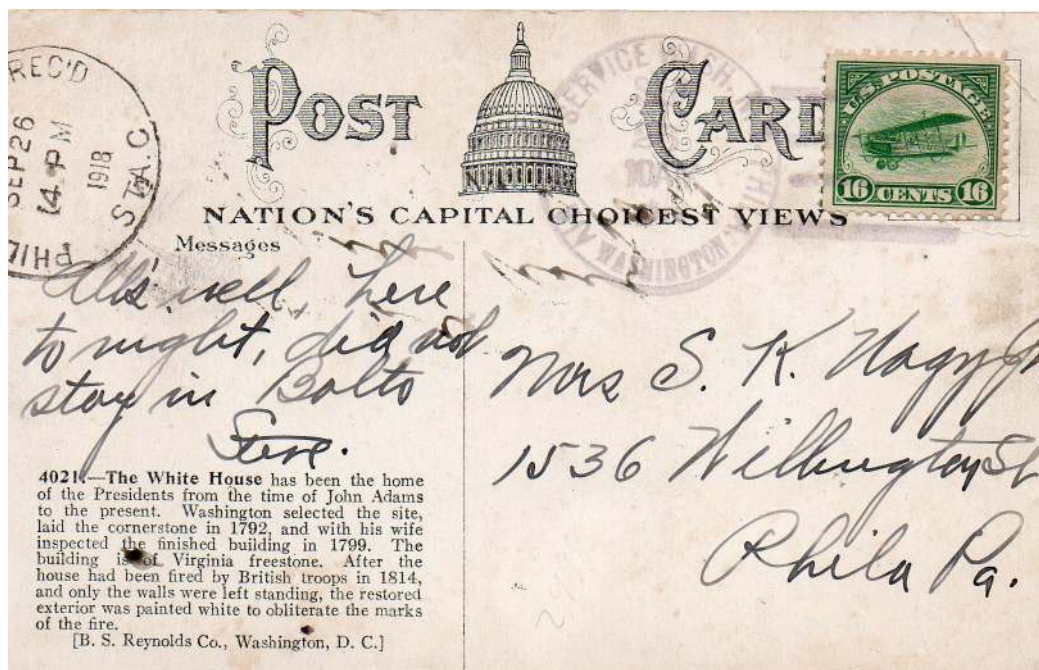 REC'D
SEP 26
4 PM
1918
STA. C
PHIL
POST CARD
SERVICE WASH. PHILA
WASHINGTON
U.S. POSTAGE
16 CENTS 16
NATION'S CAPITAL CHOICEST VIEWS
Messages
All's well, here
to night, did not
stay in Balto
Steve.
Mrs S. K. Nagy Jr
1536 Willington St
Phila Pa.
4021.—The White House has been the home
of the Presidents from the time of John Adams
to the present. Washington selected the site,
laid the cornerstone in 1792, and with his wife
inspected the finished building in 1799. The
building is of Virginia freestone. After the
house had been fired by British troops in 1814,
and only the walls were left standing, the restored
exterior was painted white to obliterate the marks
of the fire.
[B. S. Reynolds Co., Washington, D. C.]